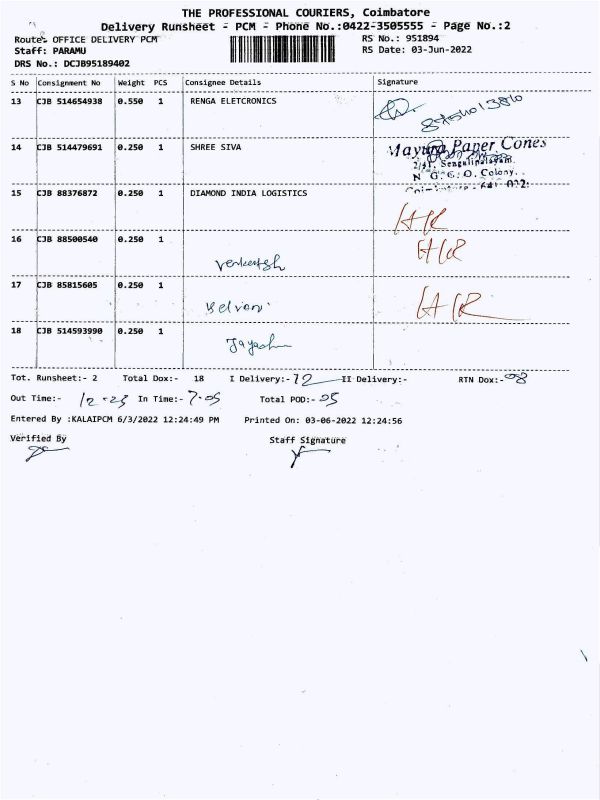 THE PROFESSIONAL COURIERS, Coimbatore
Delivery Runsheet - PCM - Phone No.:0422-3505555 - Page No.:2
Route:- OFFICE DELIVERY PCM RS No.: 951894
Staff: PARAMU RS Date: 03-Jun-2022
DRS No.: DCJB95189402
S No Consignment No Weight PCS Consignee Details Signature
13 CJB 514654938 0.550 1 RENGA ELETCRONICS
14 CJB 514479691 0.250 1 SHREE SIVA Mayura Paper Cones
2/41, Sengalipalayam,
N. G. G. O. Colony,
15 CJB 88376872 0.250 1 DIAMOND INDIA LOGISTICS
16 CJB 88500540 0.250 1 Venkatesh
17 CJB 85815605 0.250 1 Selvan
18 CJB 514593990 0.250 1 Jayash
Tot. Runsheet:- 2 Total Dox:- 18 I Delivery:- 12 II Delivery:- RTN Dox:- 08
Out Time:- 12-25 In Time:- 7-05 Total POD:- 05
Entered By :KALAIPCM 6/3/2022 12:24:49 PM Printed On: 03-06-2022 12:24:56
Verified By Staff Signature